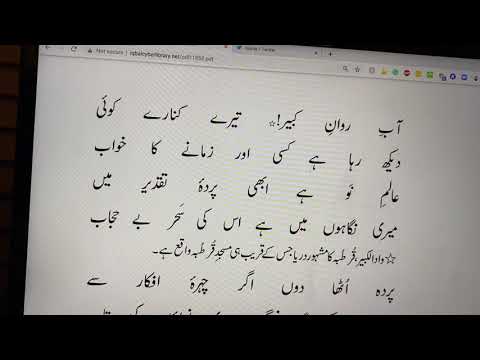 Not secure | iqbalcyberlibrary.net/pdf/1850.pdf
آبِ روانِ کبیر!☆ تیرے کنارے کوئی
دیکھ رہا ہے کسی اور زمانے کا خواب
عالمِ نَو ہے ابھی پردۂ تقدیر میں
میری نگاہوں میں ہے اس کی سَحر بے حجاب
☆وادالکبیر، قُرطبہ کا مشہور دریا جس کے قریب ہی مسجدِ قُرطبہ واقع ہے۔
پردہ اُٹھا دوں اگر چہرۂ افکار سے